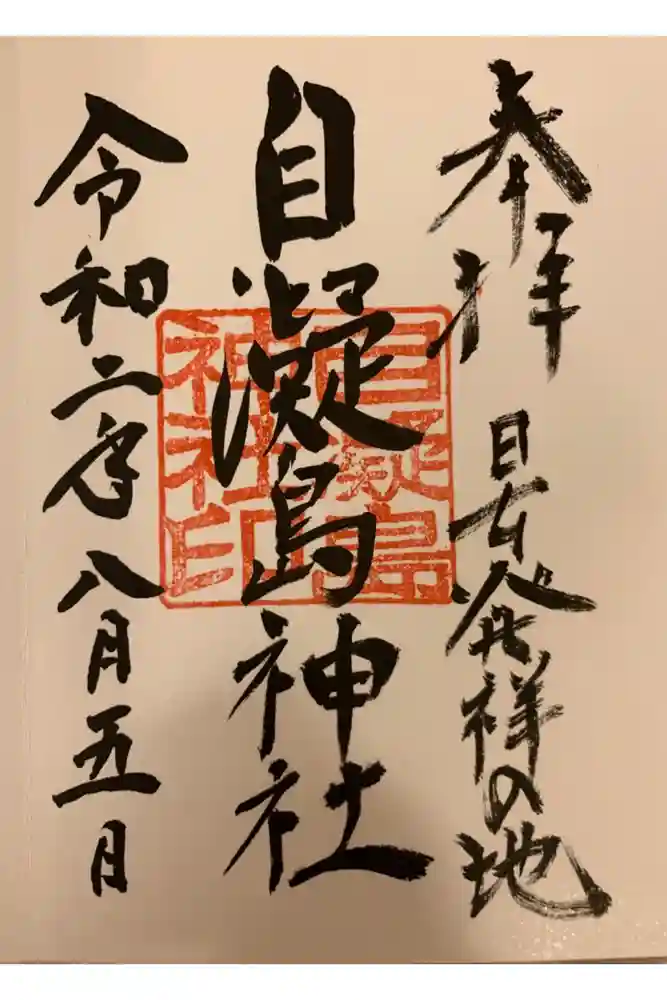 奉拝 日本発祥の地
自凝島神社
令和二年八月五日
自凝島
神社印